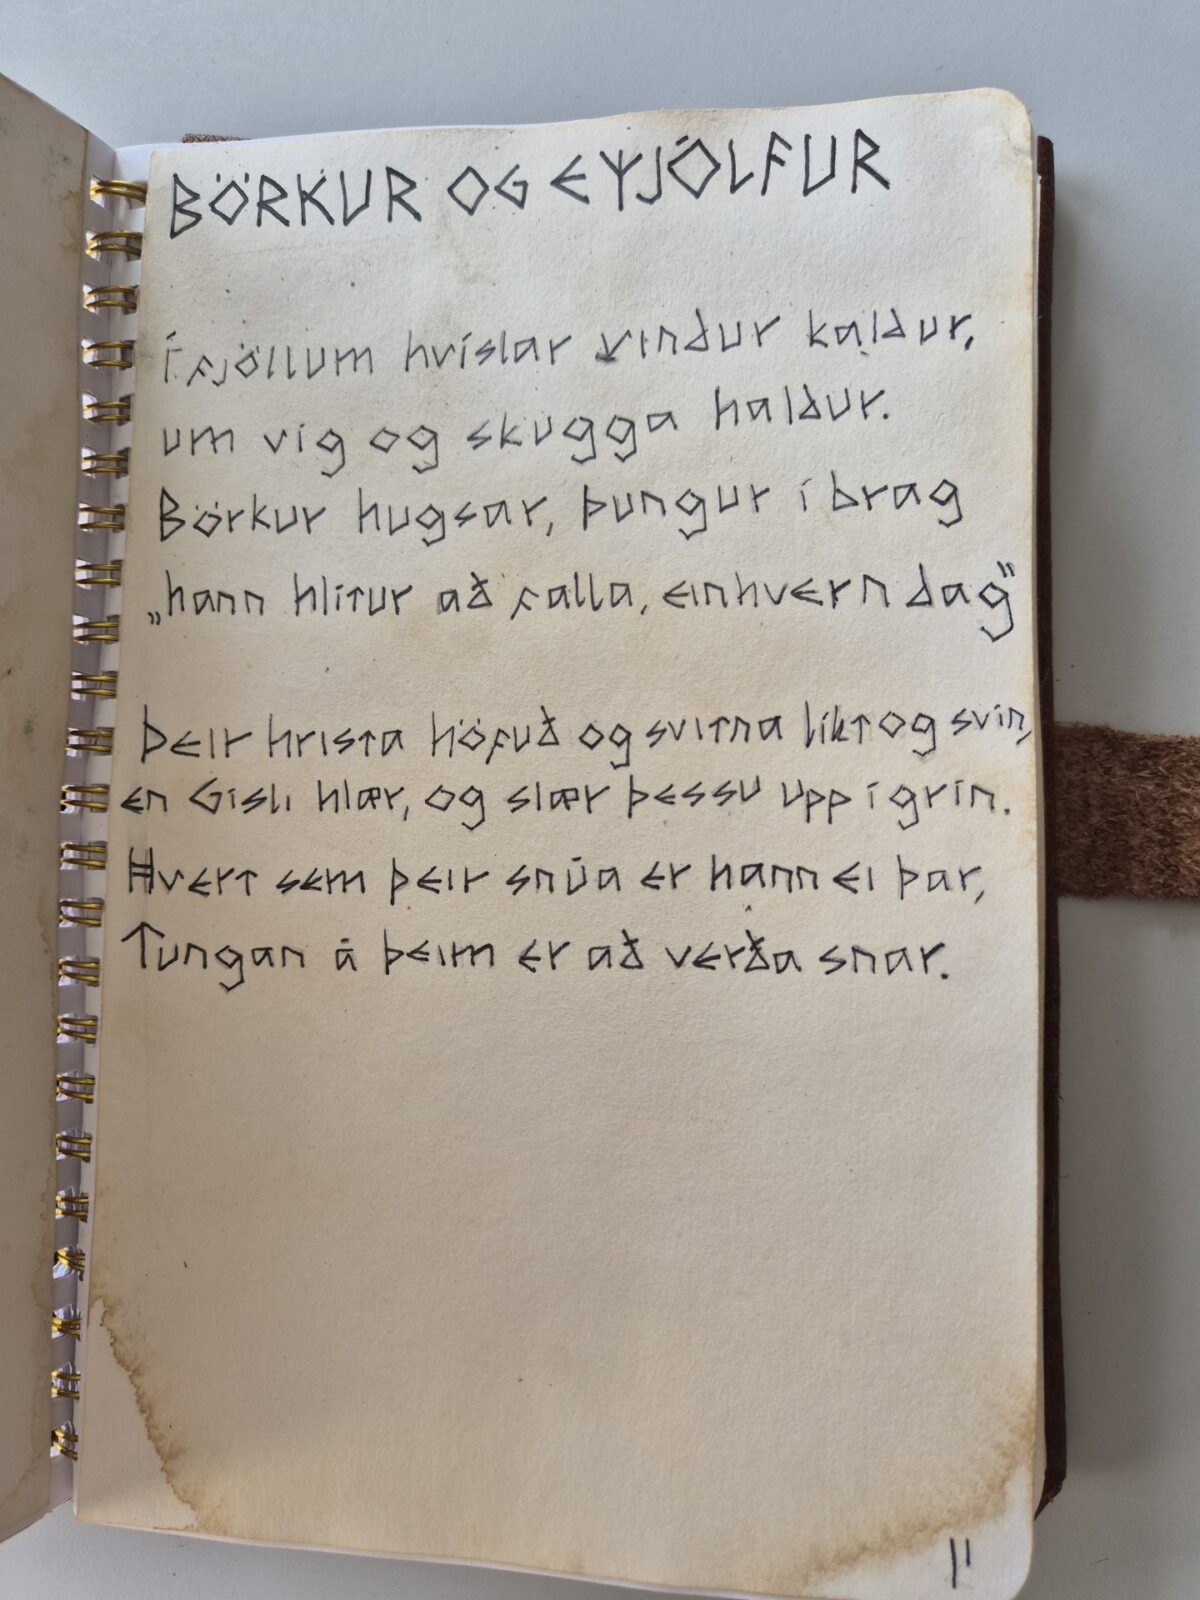 BÖRKUR OG EYJÓLFUR
Í fjöllum hvíslar vindur kaldur,
um víg og skugga haldur.
Börkur hugsar, þungur í brag
„hann hlítur að falla, einhvern dag“
Þeir hrista höfuð og svitna líkt og svín,
en Gísli hlær, og slær þessu upp í grín.
Hvert sem þeir snúa er hann ei þar,
Tungan á þeim er að verða snar.
11